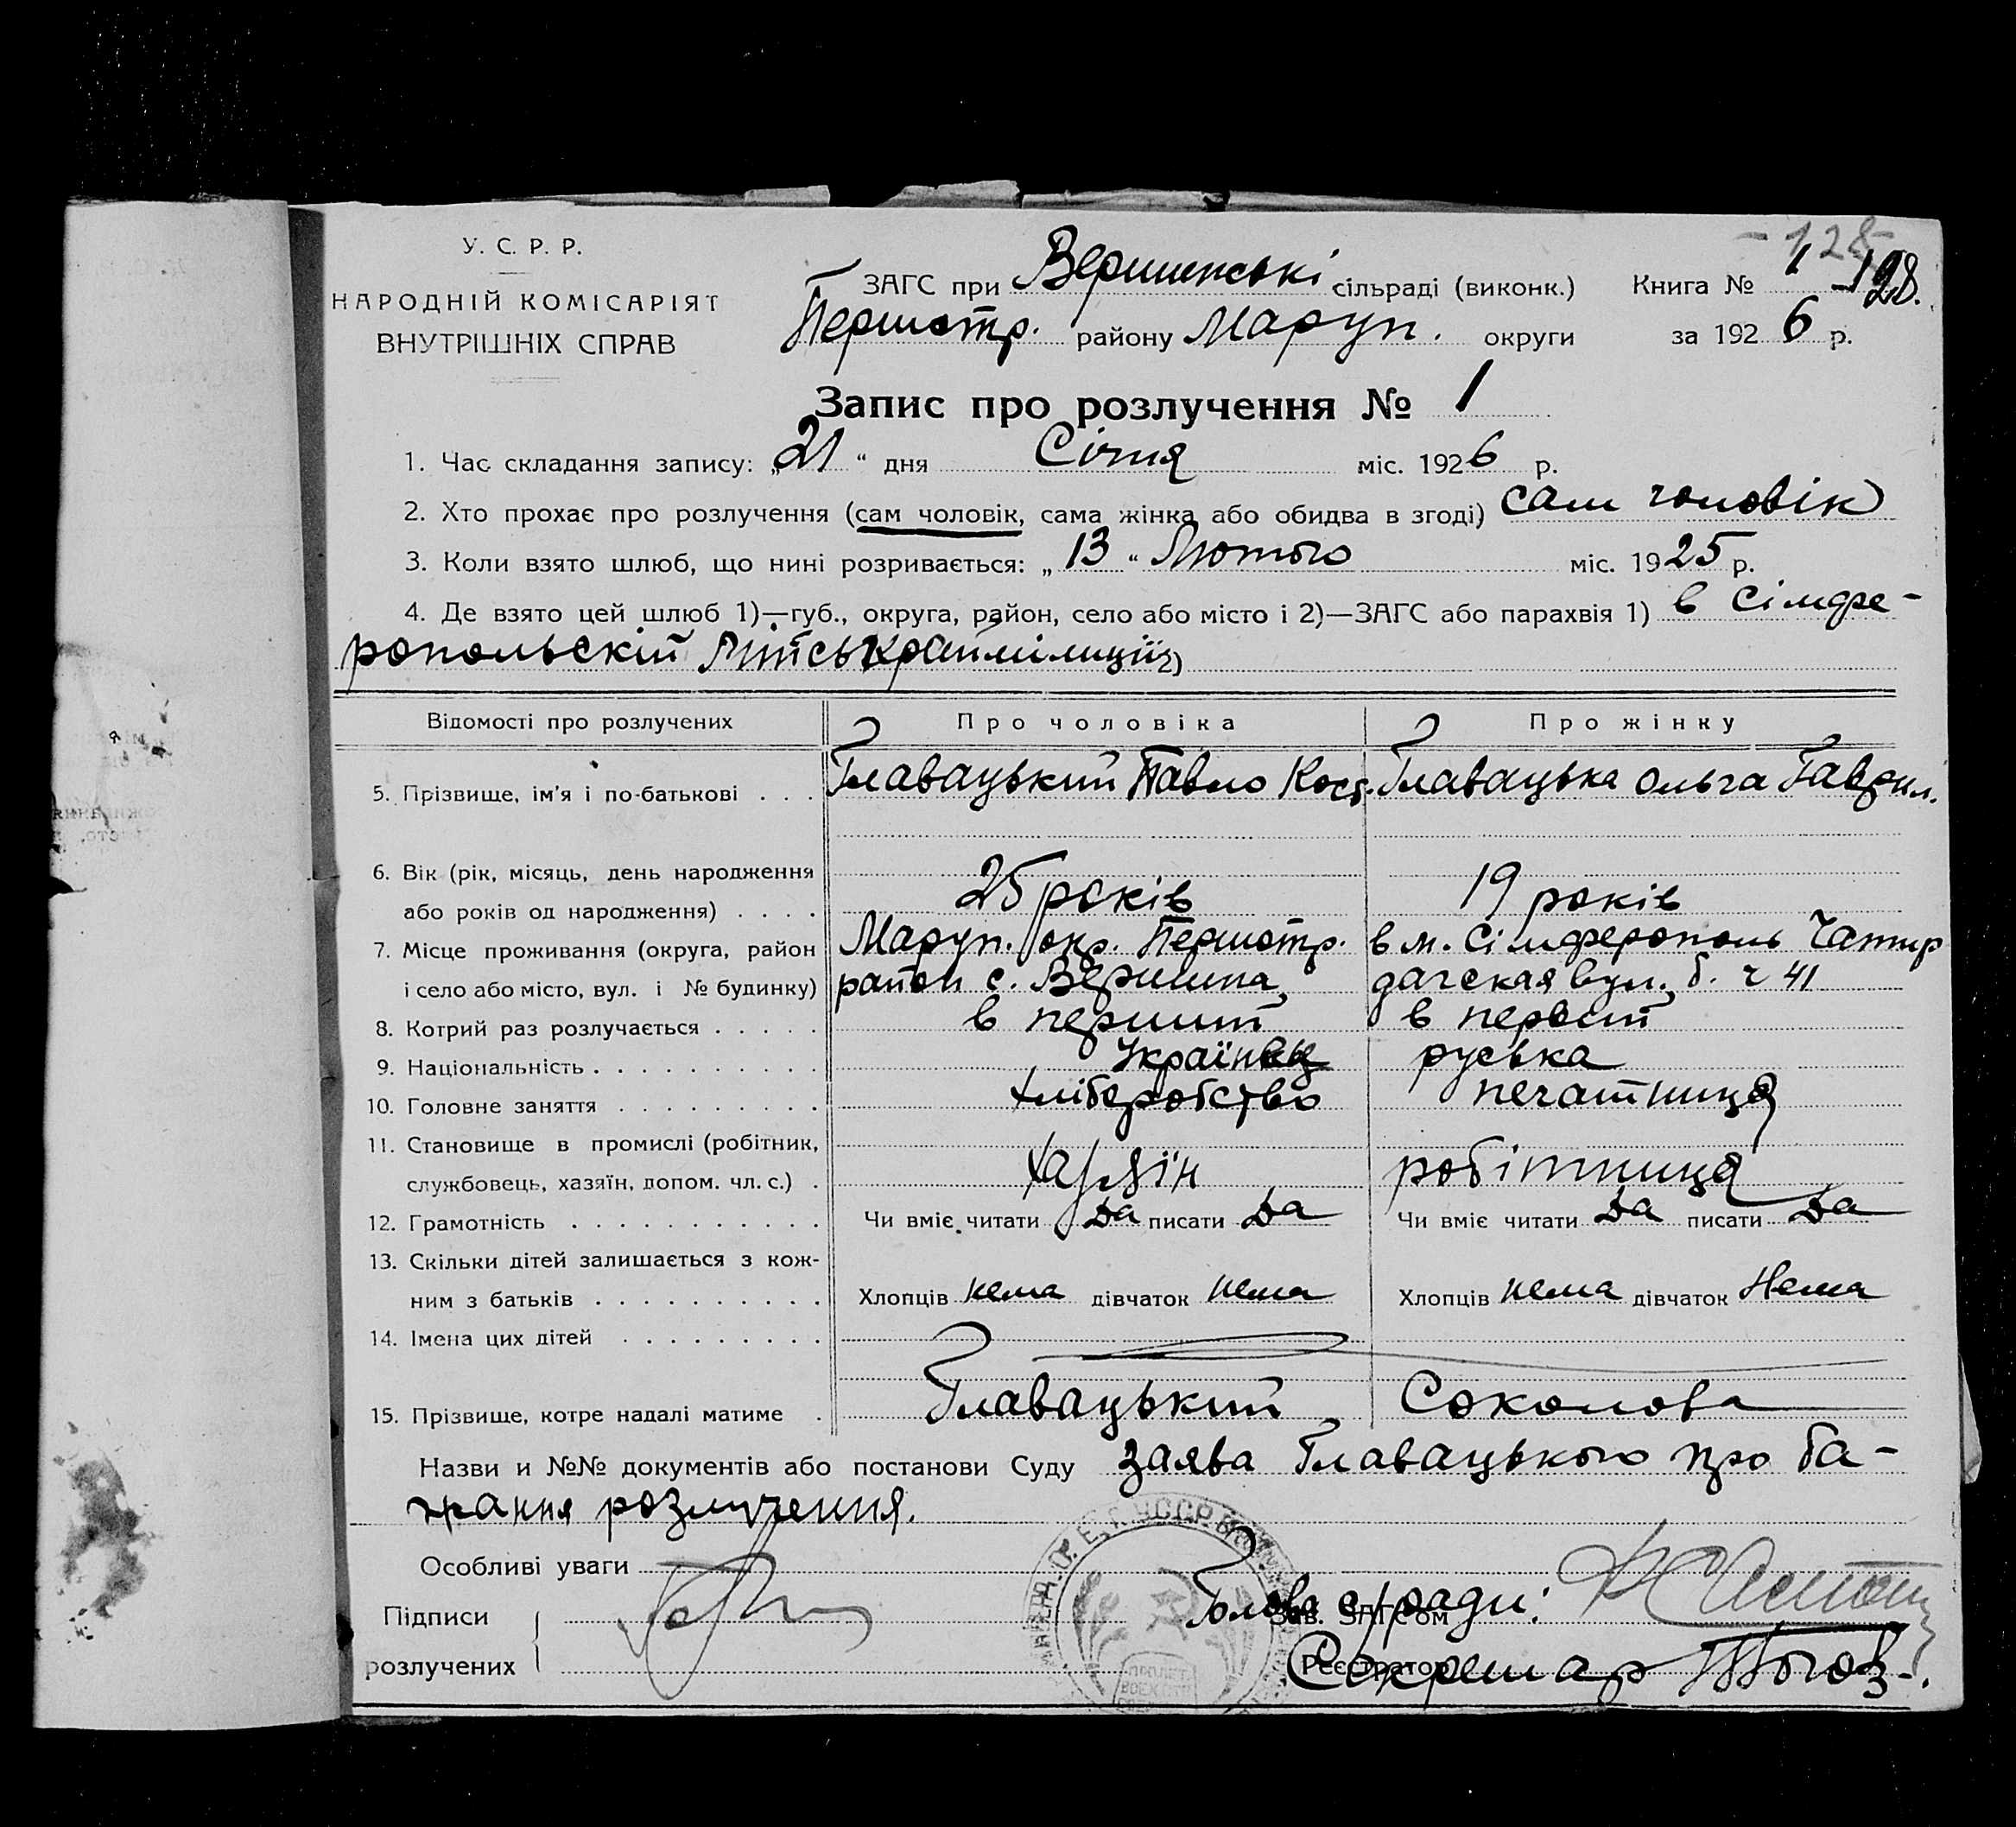 - 128 -
У. С. Р. Р.
НАРОДНІЙ КОМІСАРІЯТ
ВНУТРІШНІХ СПРАВ
ЗАГС при Вершинські сільраді (виконк.) Книга № 1 - 128.
Першотр. району Маруп. округи за 1926 р.
Запис про розлучення № 1
1. Час складання запису: „21“ дня Січня міс. 1926 р.
2. Хто прохає про розлучення (сам чоловік, сама жінка або обидва в згоді) сам чоловік
3. Коли взято шлюб, що нині розривається: „13“ Лютого міс. 1925 р.
4. Де взято цей шлюб 1)—губ., округа, район, село або місто і 2)—ЗАГС або парахвія 1) в Сімфе-
ропольскій міськраймілиції 2)
Відомості про розлучених Про чоловіка Про жінку
5. Прізвище, ім'я і по-батькові . . . Главацький Павло Кост. Главацька Ольга Гаврил.
6. Вік (рік, місяць, день народження
або років од народження) . . . . 25 років 19 років
7. Місце проживання (округа, район Маруп. окр. Першотр. в м. Сімферополь Чатир
і село або місто, вул. і № будинку) район с. Вершина, дагская вул. б. ч 41
8. Котрий раз розлучається . . . . . в перший в первий
9. Національність . . . . . . . . . . Українец руська
10. Головне заняття . . . . . . . . . хліборобство печатница
11. Становище в промислі (робітник,
службовець, хазяїн, допом. чл. с.) . хазяїн робітница
12. Грамотність . . . . . . . . . . . Чи вміє читати Да писати Да Чи вміє читати Да писати Да
13. Скільки дітей залишається з кож-
ним з батьків . . . . . . . . . . Хлопців нема дівчаток нема Хлопців нема дівчаток Нема
14. Імена цих дітей . . . . . . . . .
15. Прізвище, котре надалі матиме . Главацький Соколова
Назви и №№ документів або постанови Суду Заява Главацького про ба-
жання розлучення.
Особливі уваги
Підписи
розлучених
Зав. ЗАГС'ом Голова с/ради:
Реєстратор Секретар